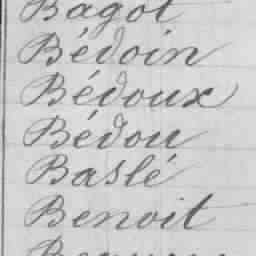 Bagot
Bédoin
Bédoux
Bédou
Baslé
Benoit